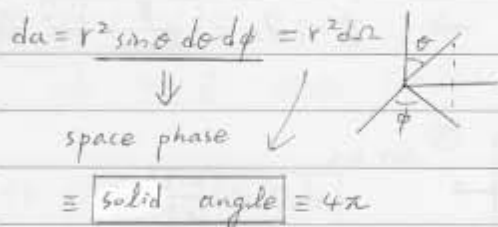 da = r² sinθ dθ dϕ = r² dΩ
θ
⇓
ϕ
space phase
≡ solid angle ≡ 4π